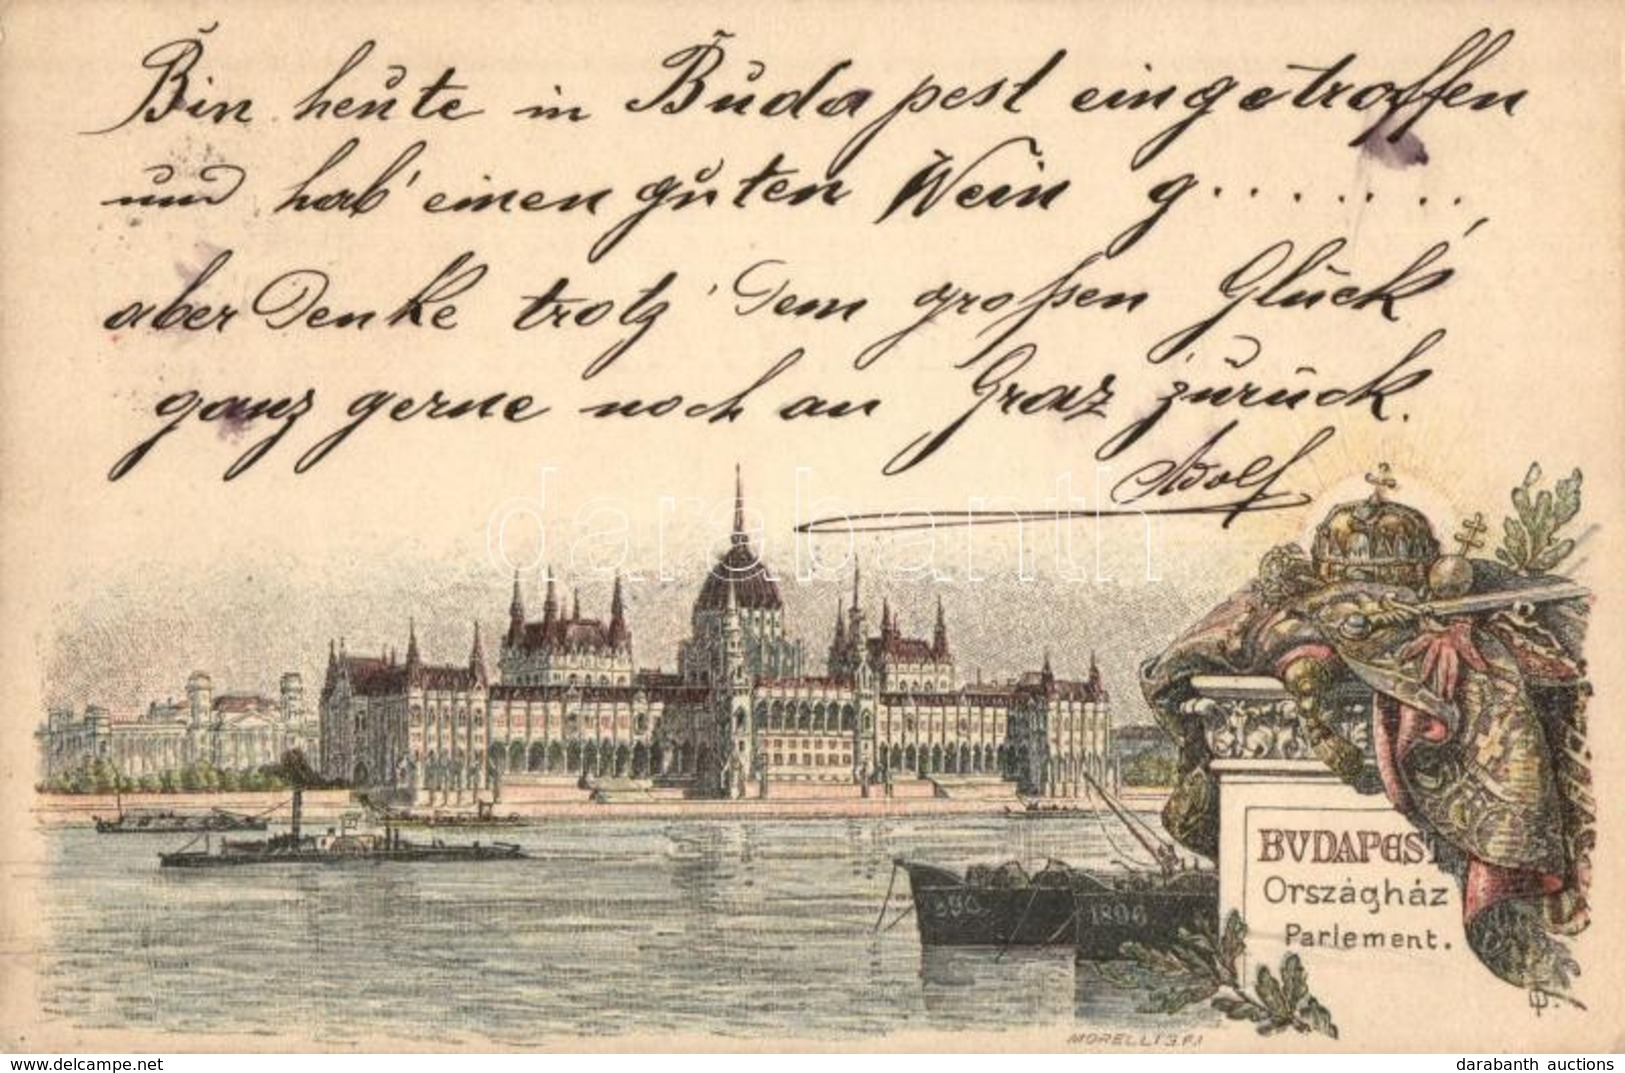 Bin heute in Budapest eingetroffen
und hab' einen guten Wein g.......,
aber Denke trotz' Dem großen Glück
ganz gerne noch an Graz zurück.
Adolf
darabanth
BUDAPEST
Országház
Parlement.
1896
MORELLI G.F.I
www.delcampe.net
darabanth auctions